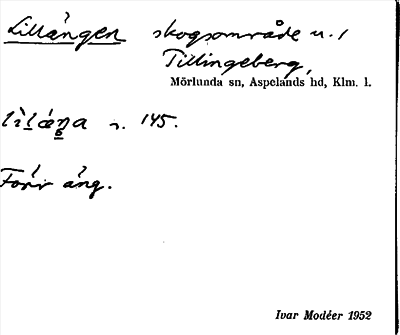 Lillängen skogsområde u. /
Tillingeberg,
Mörlunda sn, Aspelands hd, Klm. l.
s. 145.
Förr äng.
Ivar Modéer 1952